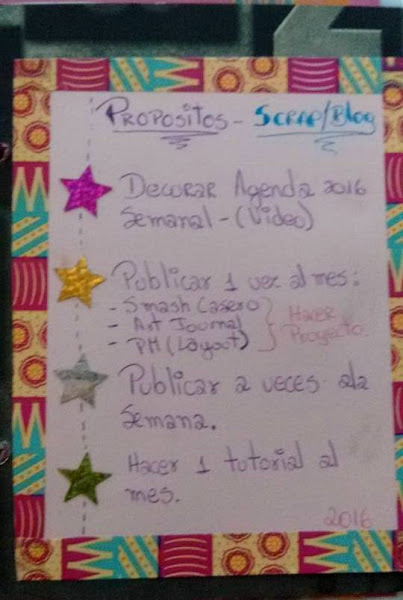 Propositos - Scrap/Blog
Decorar Agenda 2016
Semanal - (Video)
Publicar 1 vez al mes:
- Smash Casero
- Art Journal
- PM (Layout)
Hacer
Proyecto
Publicar 2 veces ala
Semana.
Hacer 1 tutorial al
mes.
2016